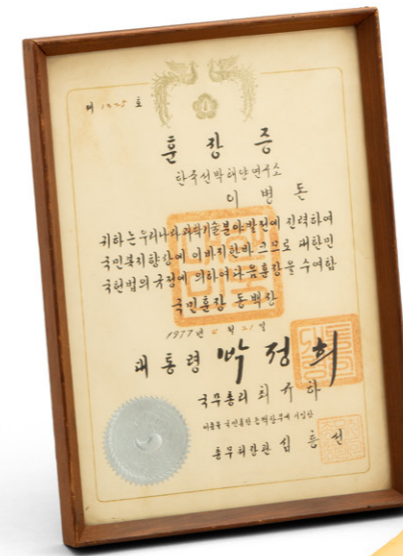 제 1225 호
훈장증
한국선박해양연구소
이병돈
귀하는 우리나라 과학기술분야 발전에 진력하여
국민복지향상에 이바지한바 크므로 대한민
국헌법의 규정에 의하여 다음 훈장을 수여함
국민훈장 동백장
1977년 4월 21일
대통령 박정희
국무총리 최규하
이증을 국민훈장 동백장부에 기입함
총무처장관 심흥선